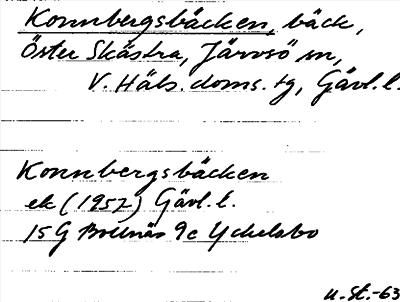 Konnbergsbäcken, bäck,
Öster Skästra, Järvsö sn,
V. Häls. doms. tg, Gävl. l.
Konnbergsbäcken
ek (1957) Gävl. l.
15G Bollnäs 9c Yckelsbo
U.St.-63